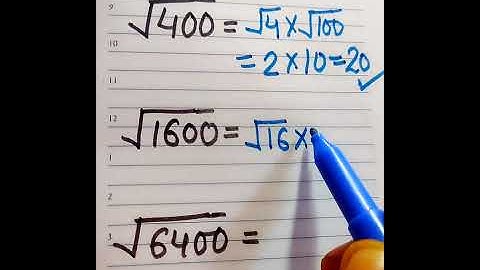 9
√400 = √4 × √100
10
= 2 × 10 = 20 ✓
11
12
√1600 = √16 ×
1
2
3
√6400 =